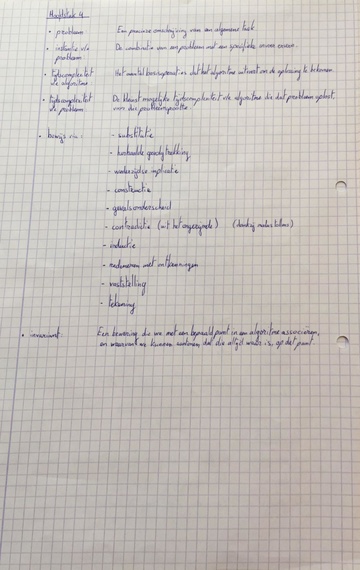 Hoofdstuk 4
• probleem Een precieze omschrijving van een algemene taak
• instantie v/e probleem De combinatie van een probleem met een specifieke invoer
• tijdscomplexiteit v/e algoritme Het aantal basisoperaties dat het algoritme uitvoert om de oplossing te bekomen.
• tijdscomplexiteit v/e probleem De kleinst mogelijke tijdscomplexiteit v/e algoritme die dat probleem oplost,
• bewijs via: - substitutie
- herhaalde gelijkstelling
- wederzijdse implicatie
- constructie
- gevalsonderscheid
- contradictie (uit het ongerijmde)
- inductie
- redeneren met
- vaststelling
- tekening
• invariant: Een bewering die we met een bepaald punt in een algoritme associëren,
en waarvan we kunnen aantonen dat die altijd waar is op dat punt.